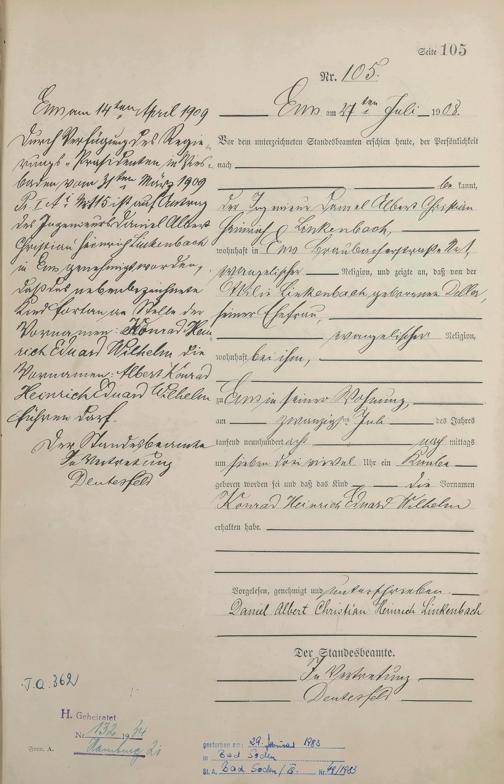 Seite 105
Nr. 105.
Ems am 27ten Juli 1908.
Vor dem unterzeichneten Standesbeamten erschien heute, der Persönlichkeit
nach
be kannt,
der Ingenieur Daniel Albert Christian
Heinrich Linkenbach,
wohnhaft in Ems Graubacherstraße
evangelischer Religion, und zeigte an, daß von der
Linkenbach geborenen
seiner Ehefrau,
evangelischer Religion,
wohnhaft bei ihm,
zu Ems in seiner Wohnung,
am zwanzigsten Juli des Jahres
tausend neunhundert acht nach mittags
um sieben drei viertel Uhr ein Knabe
geboren worden sei und daß das Kind die Vornamen
Konrad Heinrich Eduard Wilhelm
erhalten habe.
Vorgelesen, genehmigt und unterschrieben
Daniel Albert Christian Heinrich Linkenbach
Der Standesbeamte.
In Vertretung
Ems am 14ten April 1909
Durch Verfügung des Regie-
rungs-Präsidenten in Wies-
baden vom 31ten März 1909
ist auf Antrag
des Ingenieurs Daniel Albert
Christian Heinrich Linkenbach
in Ems genehmigt worden,
daß das nebenbezeichnete
Kind fortan an Stelle der
Vornamen: Konrad Hein
rich Eduard Wilhelm die
Vornamen: Albert Konrad
Heinrich Eduard Wilhelm
führen darf.
Der Standesbeamte
In Vertretung
H. Geheiratet
Nr. 132 1944
Hamburg
Form. A.
gestorben am: 29. Januar 1983
in Bad Soden
St.A. Bad Soden Nr. 48/1983